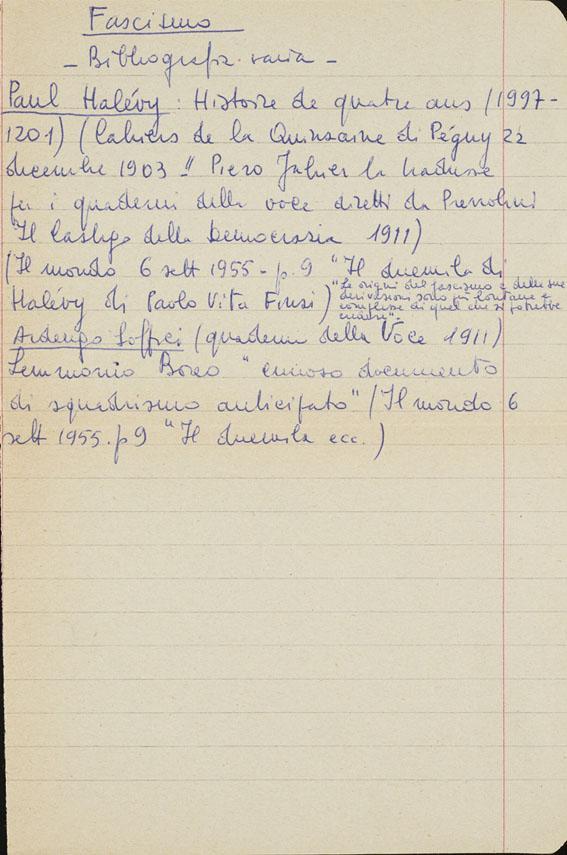 Fascismo
- Bibliografia varia -
Paul Halévy : Histoire de quatre ans (1997-
1201) (Cahiers de la Quinzaine di Péguy 22
dicembre 1903 - Piero Jahier la tradusse
per i quaderni della voce diretti da Prezzolini
"Il Castigo della Democrazia 1911)
(Il mondo 6 sett 1955 - p. 9 "Il duemila di
Halévy di Paolo Vita Finzi) "Le origini del fascismo e delle sue
derivazioni sono più lontane e
complesse di quel che si potrebbe
credere".
Ardengo Soffici (quaderni della Voce 1911)
Lemmonio Boreo "curioso documento
di squadrismo anticipato" (Il mondo 6
sett 1955. p 9 "Il duemila ecc.)